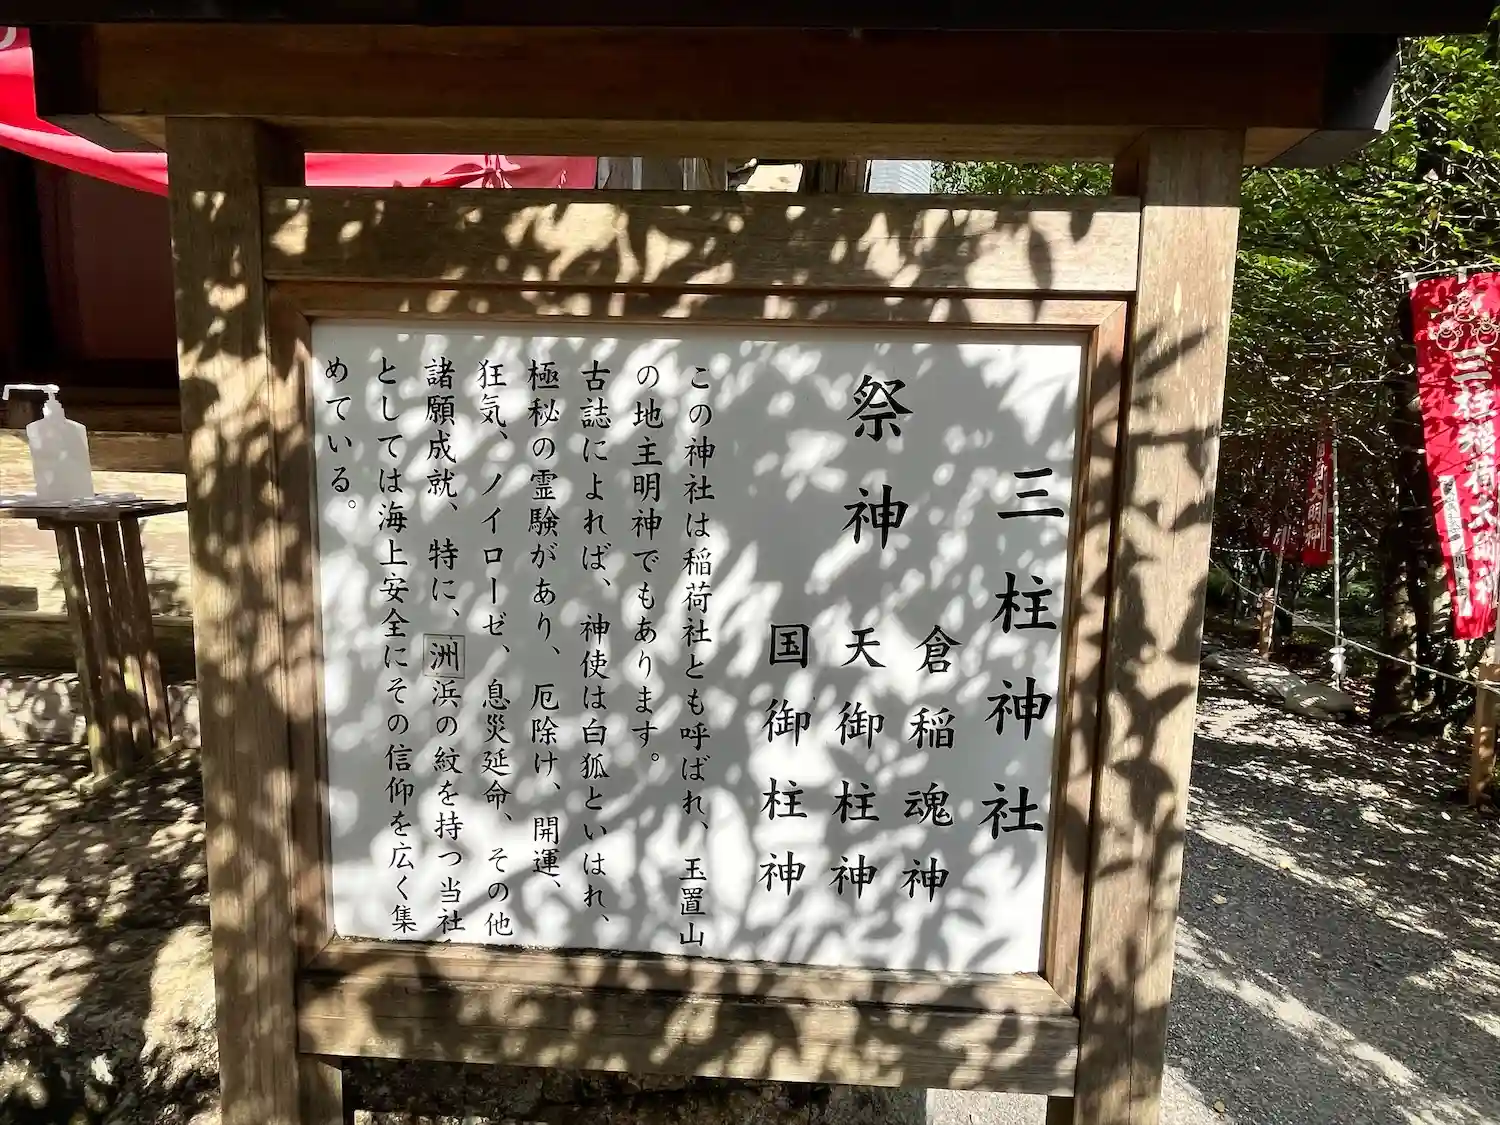 三柱神社
祭神
倉稲魂神
天御柱神
国御柱神
この神社は稲荷社とも呼ばれ、玉置山
の地主明神でもあります。
古誌によれば、神使は白狐といはれ、
極秘の霊験があり、厄除け、開運、
狂気、ノイローゼ、息災延命、その他
諸願成就、特に、洲浜の紋を持つ当社
としては海上安全にその信仰を広く集
めている。
三柱稲荷大明神